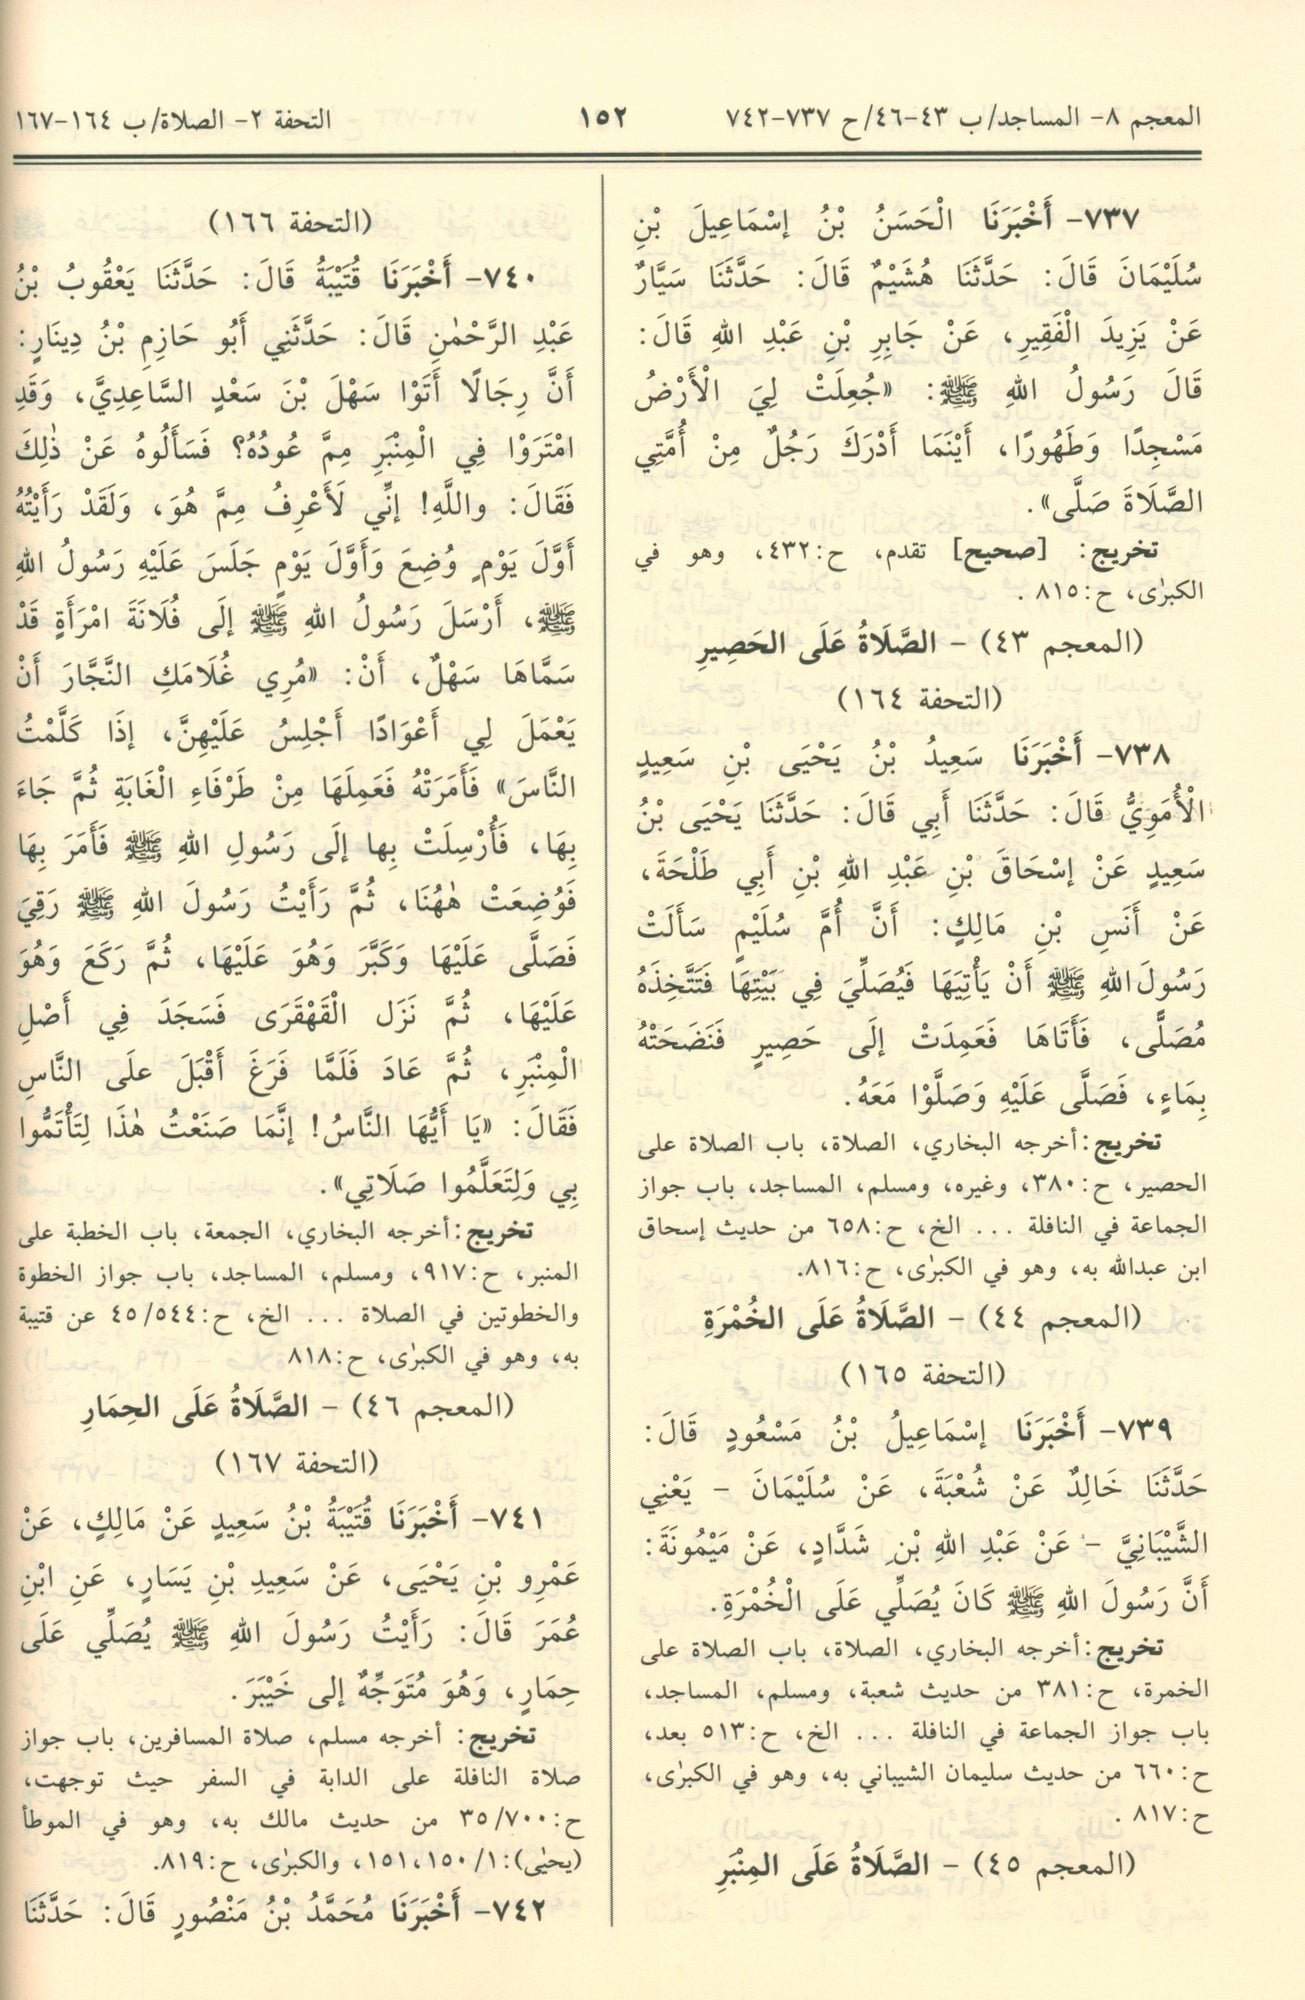 المعجم ٨- المساجد/ب ٤٣-٤٦/ح ٧٣٧-٧٤٢
١٥٢
التحفة ٢- الصلاة/ب ١٦٤-١٦٧
٧٣٧- أَخْبَرَنَا الْحَسَنُ بْنُ إِسْمَاعِيلَ بْنِ
سُلَيْمَانَ قَالَ: حَدَّثَنَا هُشَيْمٌ قَالَ: حَدَّثَنَا سَيَّارٌ
عَنْ يَزِيدَ الْفَقِيرِ، عَنْ جَابِرِ بْنِ عَبْدِ اللهِ قَالَ:
قَالَ رَسُولُ اللهِ ﷺ: «جُعِلَتْ لِيَ الْأَرْضُ
مَسْجِدًا وَطَهُورًا، أَيْنَمَا أَدْرَكَ رَجُلٌ مِنْ أُمَّتِي
الصَّلَاةَ صَلَّى».
تخريج: [صحيح] تقدم، ح:٤٣٢، وهو في
الكبرٰى، ح:٨١٥ .
(المعجم ٤٣) - الصَّلَاةُ عَلَى الحَصِيرِ
(التحفة ١٦٤)
٧٣٨- أَخْبَرَنَا سَعِيدُ بْنُ يَحْيَى بْنِ سَعِيدٍ
الْأُمَوِيُّ قَالَ: حَدَّثَنَا أَبِي قَالَ: حَدَّثَنَا يَحْيَى بْنُ
سَعِيدٍ عَنْ إِسْحَاقَ بْنِ عَبْدِ اللهِ بْنِ أَبِي طَلْحَةَ،
عَنْ أَنَسِ بْنِ مَالِكٍ: أَنَّ أُمَّ سُلَيْمٍ سَأَلَتْ
رَسُولَ اللهِ ﷺ أَنْ يَأْتِيَهَا فَيُصَلِّيَ فِي بَيْتِهَا فَتَتَّخِذَهُ
مُصَلًّى، فَأَتَاهَا فَعَمِدَتْ إِلَى حَصِيرٍ فَنَضَحَتْهُ
بِمَاءٍ، فَصَلَّى عَلَيْهِ وَصَلَّوْا مَعَهُ.
تخريج: أخرجه البخاري، الصلاة، باب الصلاة على
الحصير، ح:٣٨٠، وغيره، ومسلم، المساجد، باب جواز
الجماعة في النافلة ... الخ، ح:٦٥٨ من حديث إسحاق
ابن عبدالله به، وهو في الكبرٰى، ح:٨١٦.
(المعجم ٤٤) - الصَّلَاةُ عَلَى الخُمْرَةِ
(التحفة ١٦٥)
٧٣٩- أَخْبَرَنَا إِسْمَاعِيلُ بْنُ مَسْعُودٍ قَالَ:
حَدَّثَنَا خَالِدٌ عَنْ شُعْبَةَ، عَنْ سُلَيْمَانَ - يَعْنِي
الشَّيْبَانِيَّ - عَنْ عَبْدِ اللهِ بْنِ شَدَّادٍ، عَنْ مَيْمُونَةَ:
أَنَّ رَسُولَ اللهِ ﷺ كَانَ يُصَلِّي عَلَى الْخُمْرَةِ.
تخريج: أخرجه البخاري، الصلاة، باب الصلاة على
الخمرة، ح:٣٨١ من حديث شعبة، ومسلم، المساجد،
باب جواز الجماعة في النافلة ... الخ، ح:٥١٣ بعد،
ح:٦٦٠ من حديث سليمان الشيباني به، وهو في الكبرٰى،
ح:٨١٧ .
(المعجم ٤٥) - الصَّلَاةُ عَلَى المِنْبَرِ
(التحفة ١٦٦)
٧٤٠- أَخْبَرَنَا قُتَيْبَةُ قَالَ: حَدَّثَنَا يَعْقُوبُ بْنُ
عَبْدِ الرَّحْمٰنِ قَالَ: حَدَّثَنِي أَبُو حَازِمِ بْنُ دِينَارٍ:
أَنَّ رِجَالًا أَتَوْا سَهْلَ بْنَ سَعْدٍ السَّاعِدِيَّ، وَقَدِ
امْتَرَوْا فِي الْمِنْبَرِ مِمَّ عُودُهُ؟ فَسَأَلُوهُ عَنْ ذٰلِكَ
فَقَالَ: واللَّهِ! إِنِّي لَأَعْرِفُ مِمَّ هُوَ، وَلَقَدْ رَأَيْتُهُ
أَوَّلَ يَوْمٍ وُضِعَ وَأَوَّلَ يَوْمٍ جَلَسَ عَلَيْهِ رَسُولُ اللهِ
ﷺ، أَرْسَلَ رَسُولُ اللهِ ﷺ إِلَى فُلَانَةَ امْرَأَةٍ قَدْ
سَمَّاهَا سَهْلٌ، أَنْ: «مُرِي غُلَامَكِ النَّجَّارَ أَنْ
يَعْمَلَ لِي أَعْوَادًا أَجْلِسُ عَلَيْهِنَّ، إِذَا كَلَّمْتُ
النَّاسَ» فَأَمَرَتْهُ فَعَمِلَهَا مِنْ طَرْفَاءِ الْغَابَةِ ثُمَّ جَاءَ
بِهَا، فَأُرْسِلَتْ بِها إِلَى رَسُولِ اللهِ ﷺ فَأَمَرَ بِهَا
فَوُضِعَتْ هٰهُنَا، ثُمَّ رَأَيْتُ رَسُولَ اللهِ ﷺ رَقِيَ
فَصَلَّى عَلَيْهَا وَكَبَّرَ وَهُوَ عَلَيْهَا، ثُمَّ رَكَعَ وَهُوَ
عَلَيْهَا، ثُمَّ نَزَل الْقَهْقَرَى فَسَجَدَ فِي أَصْلِ
الْمِنْبَرِ، ثُمَّ عَادَ فَلَمَّا فَرَغَ أَقْبَلَ علَى النَّاسِ
فَقَالَ: «يَا أَيُّهَا النَّاسُ! إِنَّمَا صَنَعْتُ هٰذَا لِتَأْتَمُّوا
بِي وَلِتَعَلَّمُوا صَلَاتِي».
تخريج: أخرجه البخاري، الجمعة، باب الخطبة على
المنبر، ح:٩١٧، ومسلم، المساجد، باب جواز الخطوة
والخطوتين في الصلاة ... الخ، ح:٤٥/٥٤٤ عن قتيبة
به، وهو في الكبرٰى، ح:٨١٨
(المعجم ٤٦) - الصَّلَاةُ عَلَى الحِمَارِ
(التحفة ١٦٧)
٧٤١- أَخْبَرَنَا قُتَيْبَةُ بْنُ سَعِيدٍ عَنْ مَالِكٍ، عَنْ
عَمْرِو بْنِ يَحْيَى، عَنْ سَعِيدِ بْنِ يَسَارٍ، عَنِ ابْنِ
عُمَرَ قَالَ: رَأَيْتُ رَسُولَ اللهِ ﷺ يُصَلِّي عَلَى
حِمَارٍ، وَهُوَ مُتَوَجِّهٌ إِلى خَيْبَرَ.
تخريج: أخرجه مسلم، صلاة المسافرين، باب جواز
صلاة النافلة على الدابة في السفر حيث توجهت،
ح:٣٥/٧٠٠ من حديث مالك به، وهو في الموطأ
(يحيٰى):١/١٥٠،١٥١، والكبرٰى، ح:٨١٩.
٧٤٢- أَخْبَرَنَا مُحَمَّدُ بْنُ مَنْصُورٍ قَالَ: حَدَّثَنَا